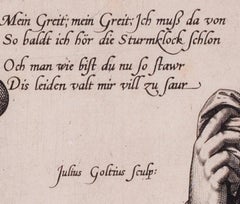 Mein Greit; mein Greit: Ich muß da von
So baldt ich hör die Sturmklock schlon
Och man wie bist dü nu so stawr
Dis leiden valt mir vill zu saur
Julius Goltius sculp: